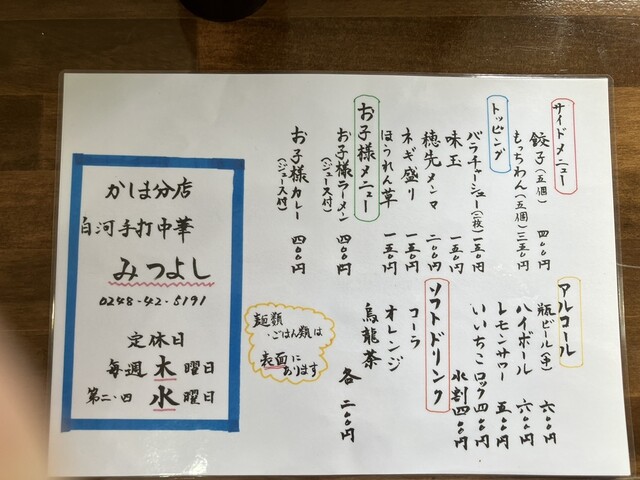 サイドメニュー
餃子(五個) 四〇〇円
もっちわん(五個) 三五〇円
トッピング
バラチャーシュー(二枚) 一五〇円
味玉 一五〇円
穂先メンマ 二〇〇円
ネギ盛り 一五〇円
ほうれん草 一五〇円
お子様メニュー
お子様ラーメン(ジュース付) 四〇〇円
お子様カレー(ジュース付) 四〇〇円
アルコール
瓶ビール(中) 六〇〇円
ハイボール 六〇〇円
レモンサワー 五〇〇円
いいちこロック 四〇〇円
水割 四〇〇円
ソフトドリンク
コーラ
オレンジ
烏龍茶
各二〇〇円
麺類
・ごはん類は
表面に
あります
かしま分店
白河手打中華
みつよし
0248-42-5191
定休日
毎週木曜日
第二・四水曜日